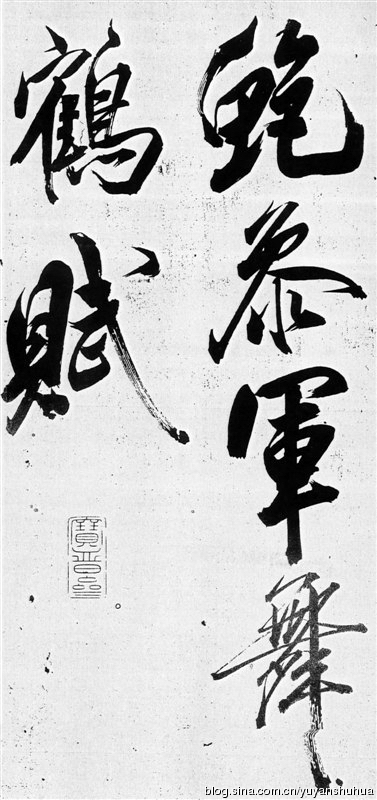 鮑參軍舞
鶴賦
寶晉齋
blog.sina.com.cn/yuyanshuhua